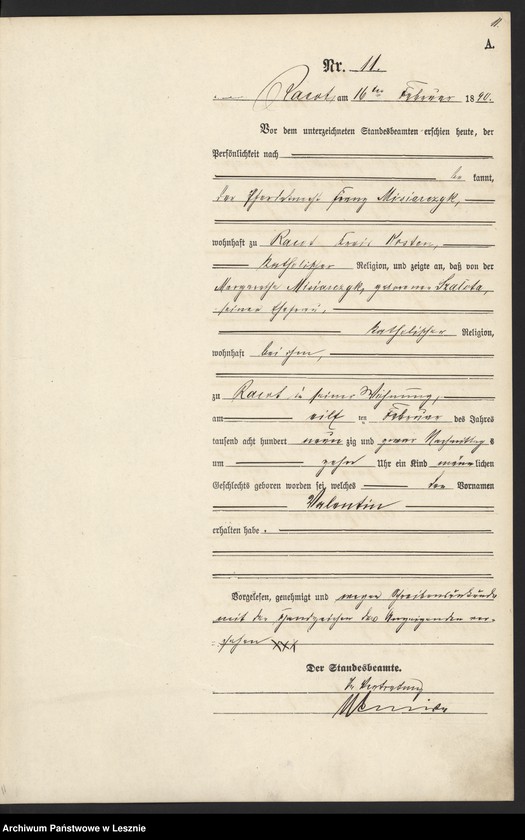 11.
A.
Nr. 11.
Racot, am 16ten Februar 1890.
Vor dem unterzeichneten Standesbeamten erschien heute, der
Persönlichkeit nach
be kannt,
der Pferdeknecht Franz Misiarczyk,
wohnhaft zu Racot Kreis Kosten,
katholischer Religion, und zeigte an, daß von der
Margarethe Misiarczyk, geborenen Szalata,
seiner Ehefrau,
katholischer Religion,
wohnhaft bei ihm,
zu Racot in seiner Wohnung,
am eilf ten Februar des Jahres
tausend acht hundert neun zig und zwar Nachmittags
um zehn Uhr ein Kind männlichen
Geschlechts geboren worden sei, welches den Vornamen
Valentin
erhalten habe.
Vorgelesen, genehmigt und wegen Schreibensunkunde
mit dem Handzeichen des Anzeigenden ver-
sehen XXX
Der Standesbeamte.
In Vertretung
Archiwum Państwowe w Lesznie